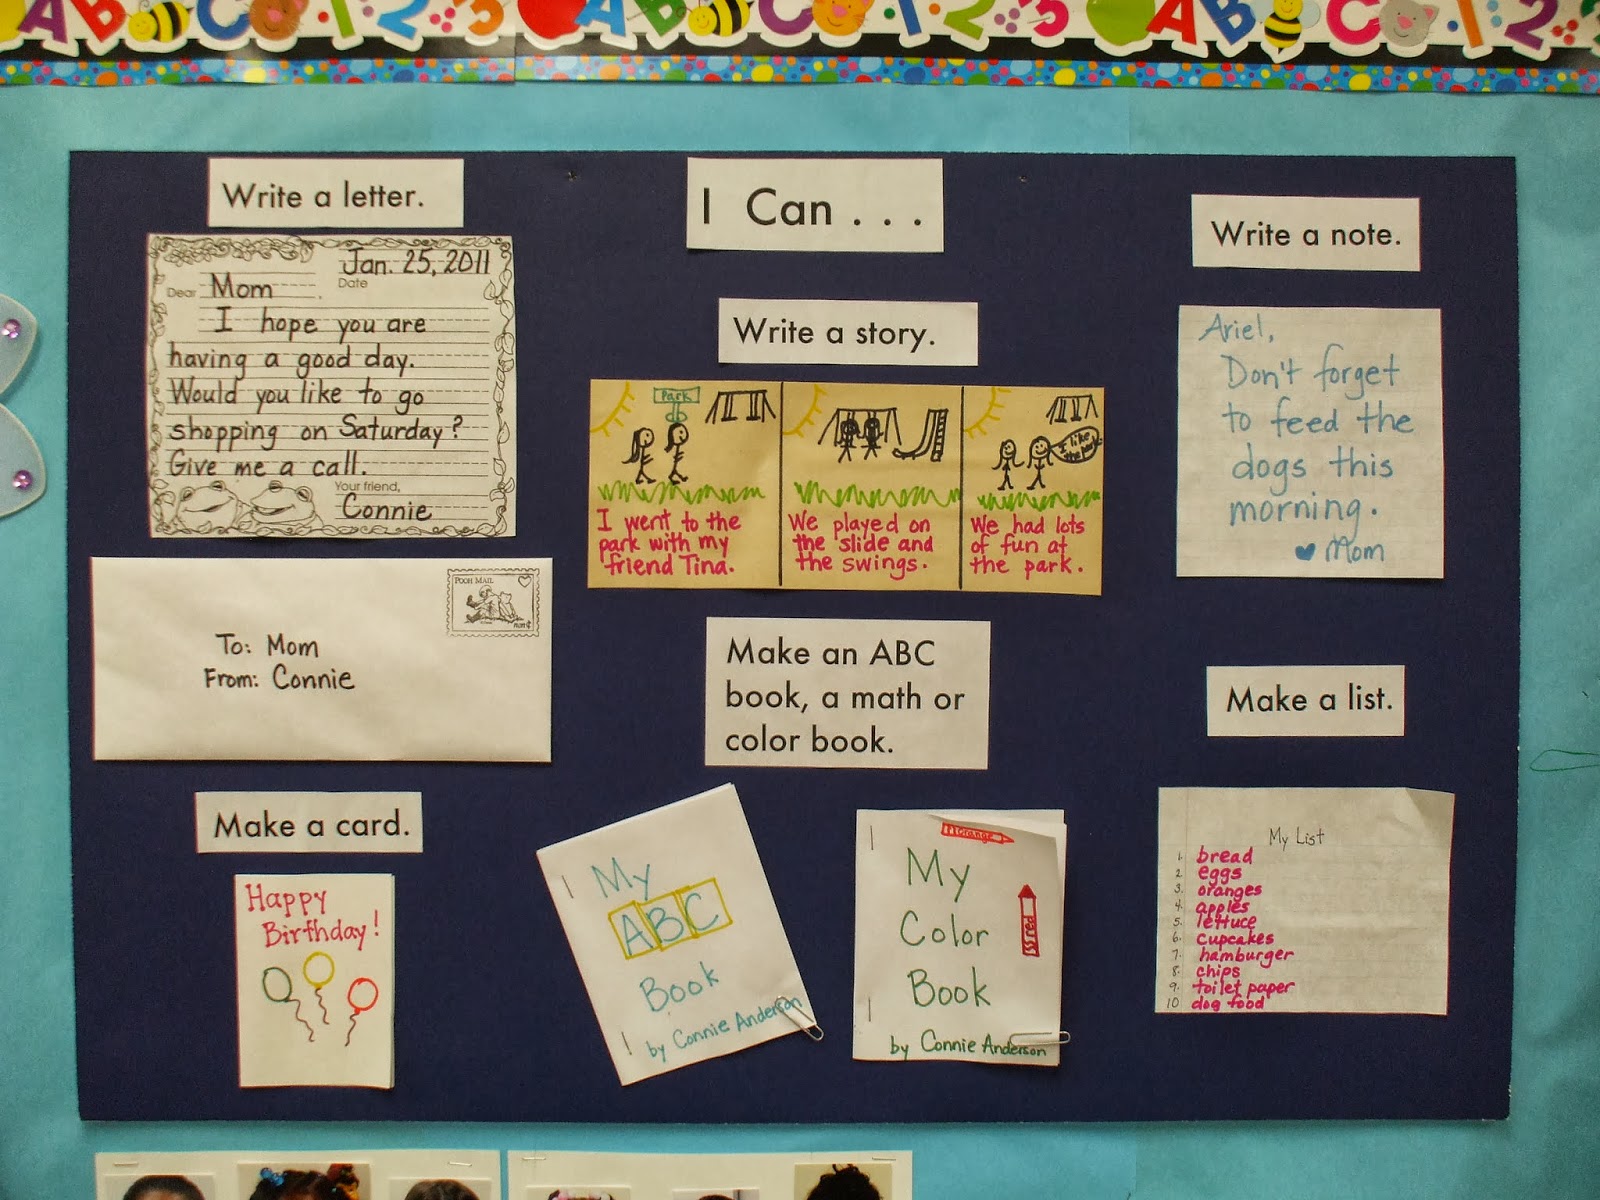 ABC 123 ABC 123 ABC 12
I Can . . .
Write a letter.
Jan. 25, 2011
Date
Dear Mom
I hope you are
having a good day.
Would you like to go
shopping on Saturday?
Give me a call.
Your friend,
Connie
POOH MAIL
To: Mom
From: Connie
Make a card.
Happy
Birthday!
Write a story.
Park
I went to the
park with my
friend Tina.
We played on
the slide and
the swings.
I like
the park.
We had lots
of fun at
the park.
Make an ABC
book, a math or
color book.
My
ABC
Book
by Connie Anderson
orange
red
My
Color
Book
by Connie Anderson
Write a note.
Ariel,
Don't forget
to feed the
dogs this
morning.
♥ Mom
Make a list.
My List
1. bread
2. eggs
3. oranges
4. apples
5. lettuce
6. cupcakes
7. hamburger
8. chips
9. toilet paper
10 dog food